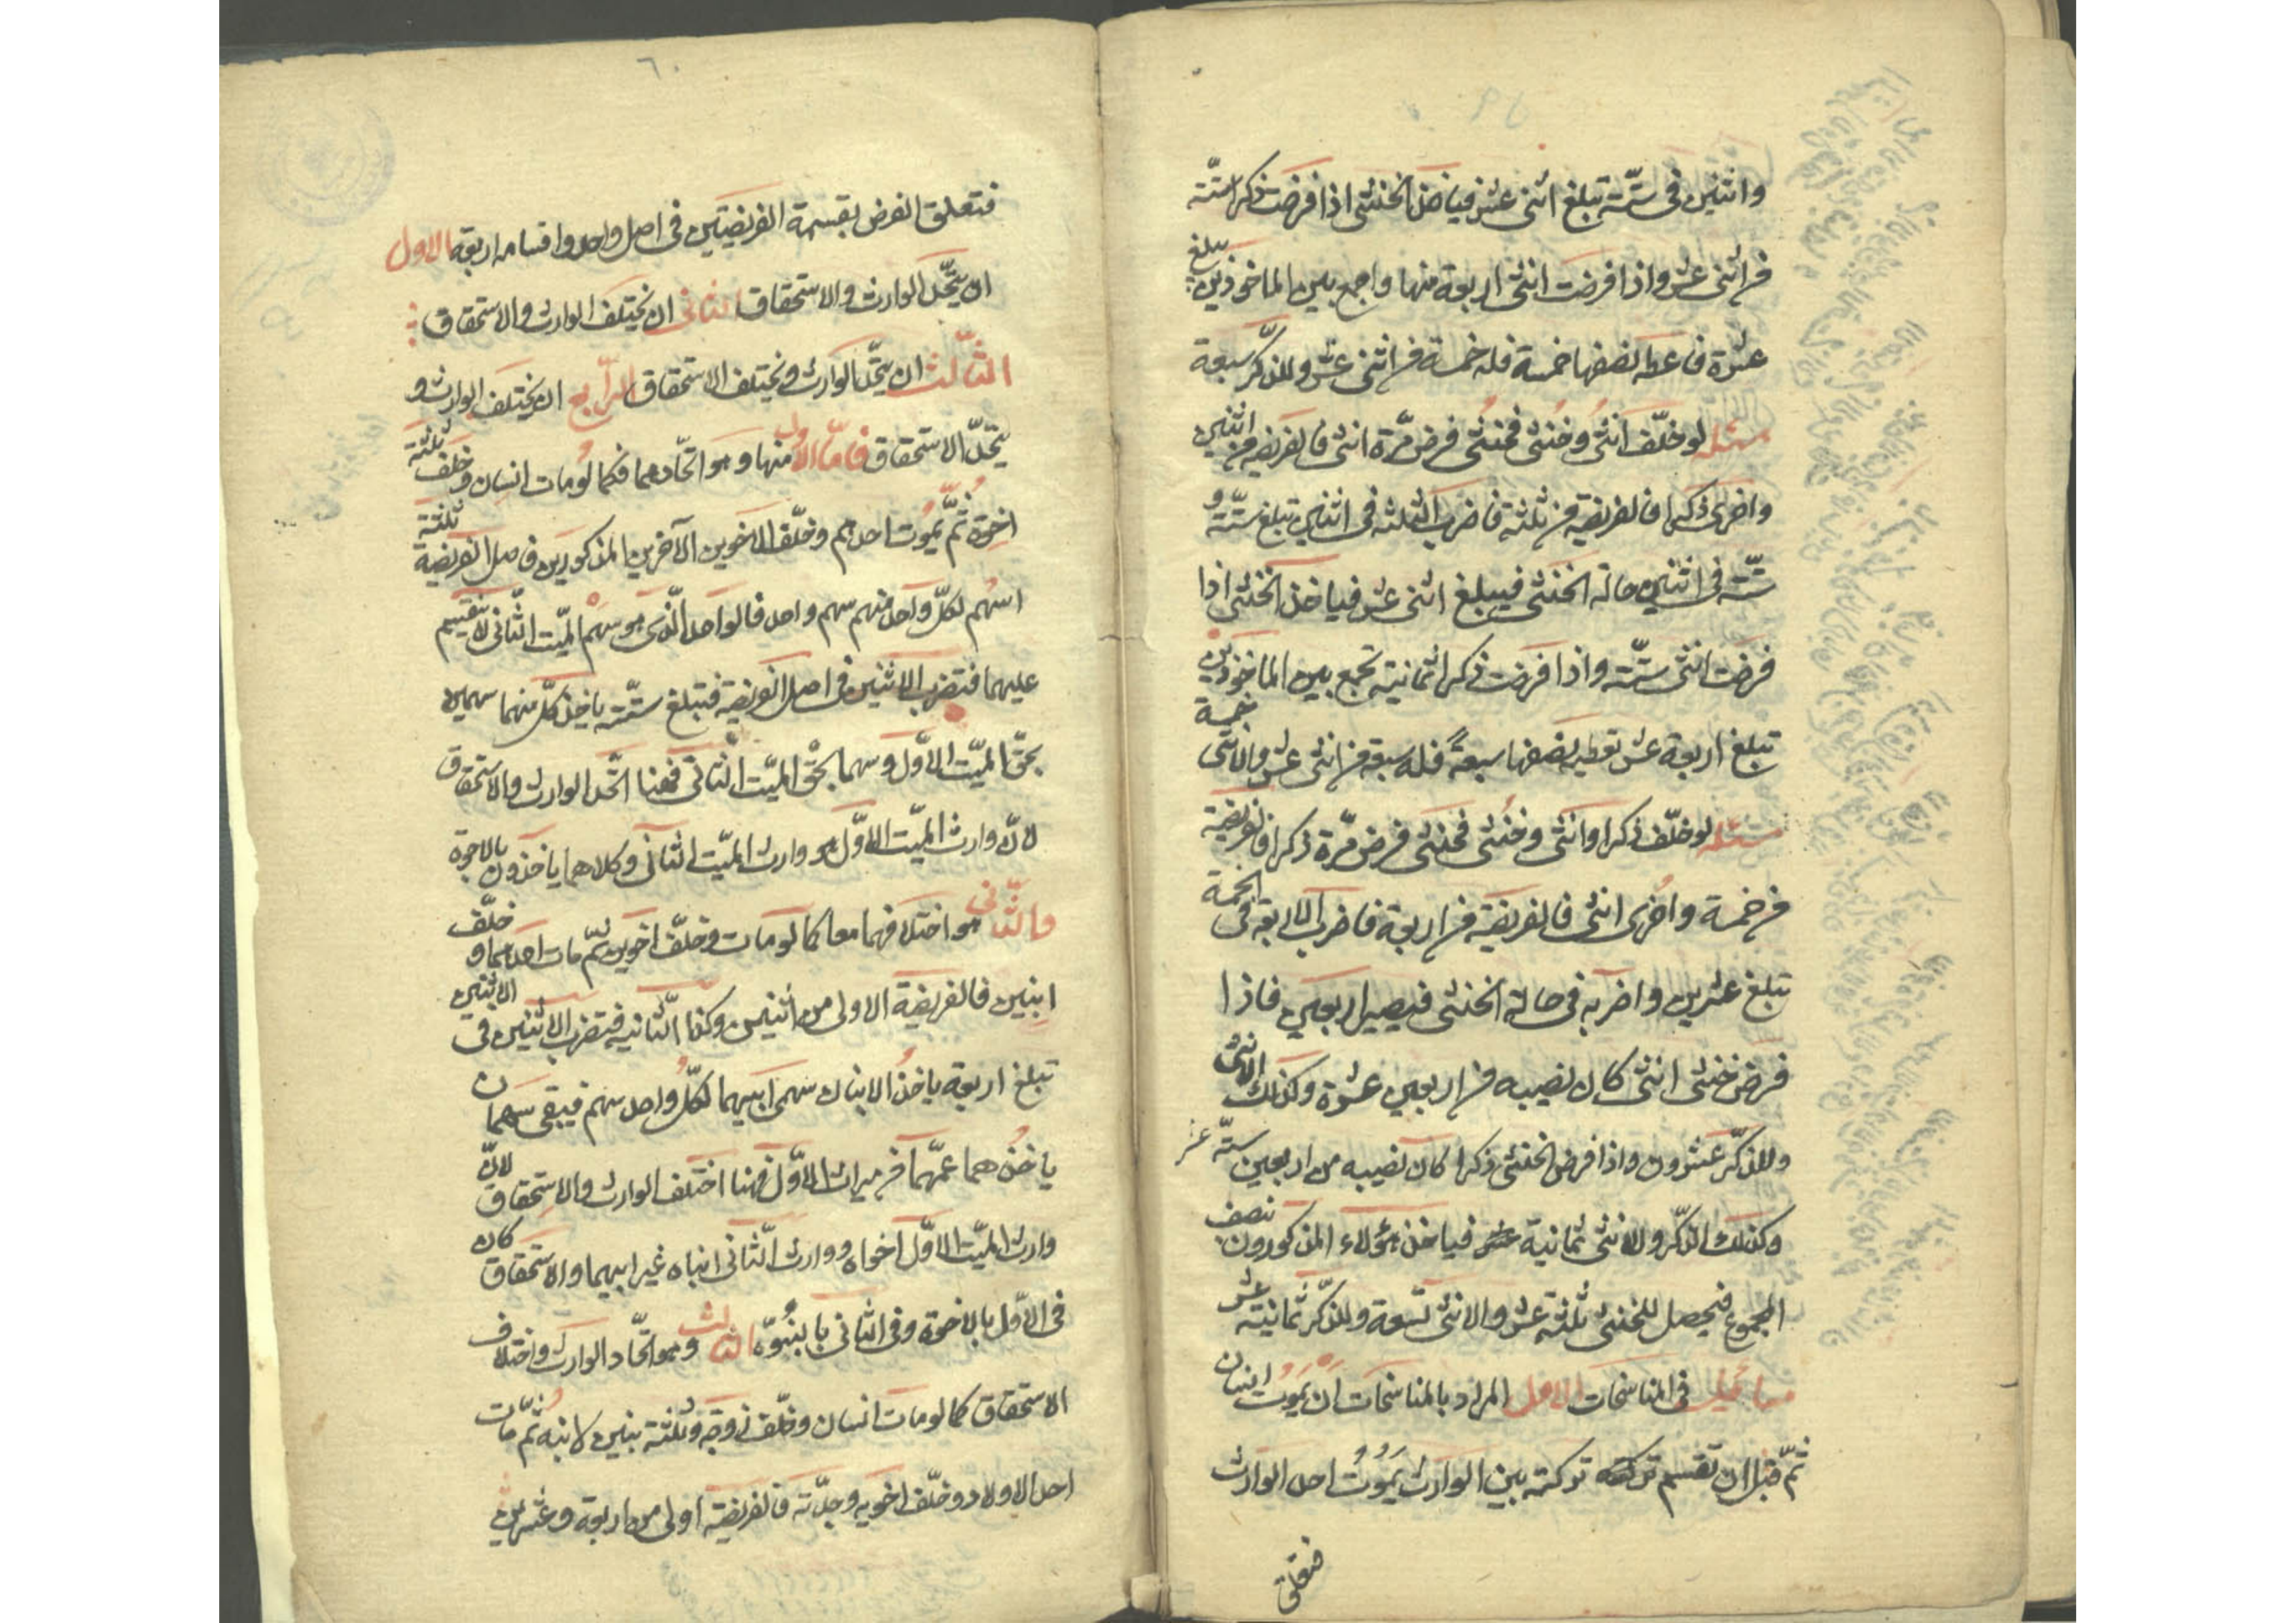 واثنين في ستّة تبلغ اثنى عشر فياخذ الخنثى اذا فرضت ذكرا ستّة
من اثنى عشر واذا فرضت انثى اربعة منها واجمع بين الماخوذين يبلغ
عشرة فاعطه نصفها خمسة فله خمسة من اثنى عشر وللذكّر سبعة
مسئله لو خلّف انثى وخنثى فخنثى فرض مرّة انثى فالفريضه من اثنين
واخرى ذكرا فالفريضه من ثلثة فاضرب الثلثه في اثنين تبلغ ستّة و
ستّة في اثنين حالة الخنثى فيبلغ اثنى عشر فياخذ الخنثى اذا
فرضت انثى ستّة واذا فرضت ذكرا ثمانية تجمع بين الماخوذين
تبلغ اربعة عشر تعطيه نصفها سبعةً فله سبعة من اثنى عشر والانثى خمسة
مسئله لو خلّف ذكرا وانثى وخنثى فخنثى فرض مرّة ذكرا فالفريضة
من خمسة واخرى انثى فالفريضة من اربعة فاضرب الاربعة في الخمسة
تبلغ عشرين واضربه في حالة الخنثى فيصير اربعين فاذا
فرض خنثى انثى كان نصيبه من اربعين عشرة وكذلك الانثى
وللذكّر عشرون واذا فرض الخنثى ذكرا كان نصيبه من اربعين ستّة عشر
وكذلك الذكّر والانثى ثمانية عشر فياخذ هؤلاء المذكورون نصف
المجموع فيحصل للخنثى ثلثة عشر والانثى تسعة وللذكّر ثمانية عشر
مسائل في المناسخات الاول المراد بالمناسخات ان يموت انسان
ثمّ قبل ان تقسم تركته تركته بين الوارث يموت احد الوارث
فتعلق
٦٠
فتعلق الغرض بقسمة الفريضتين في اصل واحد واقسامه اربعة الاول
ان يتّحد الوارث والاستحقاق الثانى ان يختلف الوارث والاستحقاق
الثّالث ان يتّحد الوارث ويختلف الاستحقاق الرّابع ان يختلف الوارث و
يتّحد الاستحقاق فامّا الاول منها وهو اتّحادهما فكما لو مات انسان وخلف ثلثة
اخوة ثمّ يموت احدهم وخلّف الاخوين الآخرين المذكورين فاصل الفريضة ثلثة
اسهم لكلّ واحد منهم سهم واحد فالواحد الّذى هو سهم الميّت الثّانى لا ينقسم
عليهما فتضرب الاثنين في اصل الفريضة فتبلغ ستّة ياخذ كلّ منهما سهمين
بحقّ الميّت الاوّل وسهما بحقّ الميّت الثّانى فهنا اتّحد الوارث والاستحقاق
لانّ وارث الميّت الاوّل هو وارث الميّت الثانى وكلاهما ياخذون بالاخوة
والثّانى هو اختلافهما معا كما لو مات وخلّف اخوين ثمّ مات احدهما وخلّف
ابنين فالفريضة الاولى من اثنين وكذا الثّانيه فتضرب الاثنين في الاثنين
تبلغ اربعة ياخذ الابنان سهمى ابيهما لكلّ واحد سهم فيبقى سهمان
ياخذهما عمّهما من ميراث الاوّل فهنا اختلف الوارث والاستحقاق لانّ
وارث الميّت الاوّل اخواه ووارث الثّانى ابناه غير ابيهما والاستحقاق كان
في الاوّل بالاخوة وفي الثانى بالبنوّة الثالث وهو اتّحاد الوارث واختلاف
الاستحقاق كما لو مات انسان وخلّف زوجة وثلثة بنين لابنه ثمّ مات
احد الاولاد وخلّف اخويه وجدّته فالفريضة اولى من اربعة وعشرين